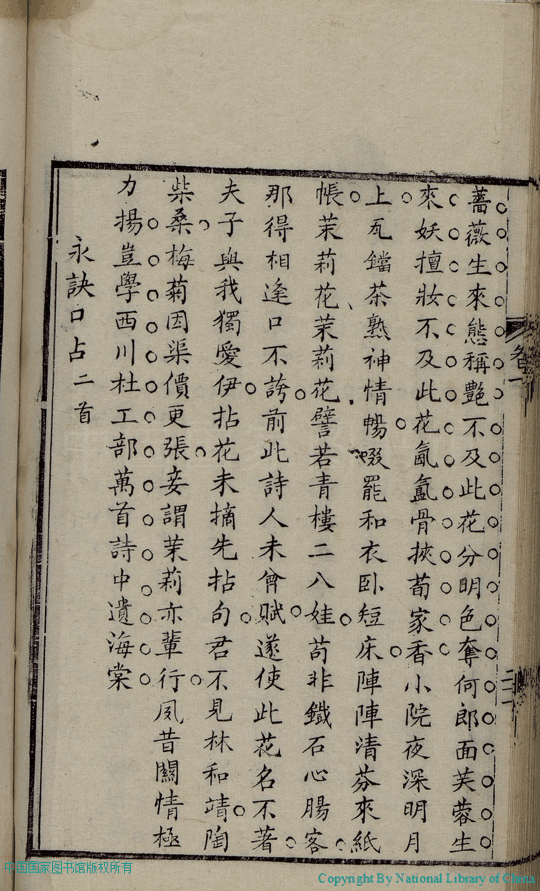 薔薇生來態稱艷不及此花分明色奪何郎面芙蓉生
來妖擅妝不及此花氤氳骨挾荀家香小院夜深明月
上瓦鐺茶熟神情暢啜罷和衣臥短床陣陣清芬來紙
帳茉莉花茉莉花譬若青樓二八娃茍非鐵石心腸客
那得相逢口不誇前此詩人未曾賦遂使此花名不著
夫子與我獨愛伊拈花未摘先拈句君不見林和靖陶
柴桑梅菊因渠價更張妾謂茉莉亦輩行夙昔關情極
力揚豈學西川杜工部萬首詩中遺海棠
永訣口占二首
中国国家图书馆版权所有
Copyright By National Library of China